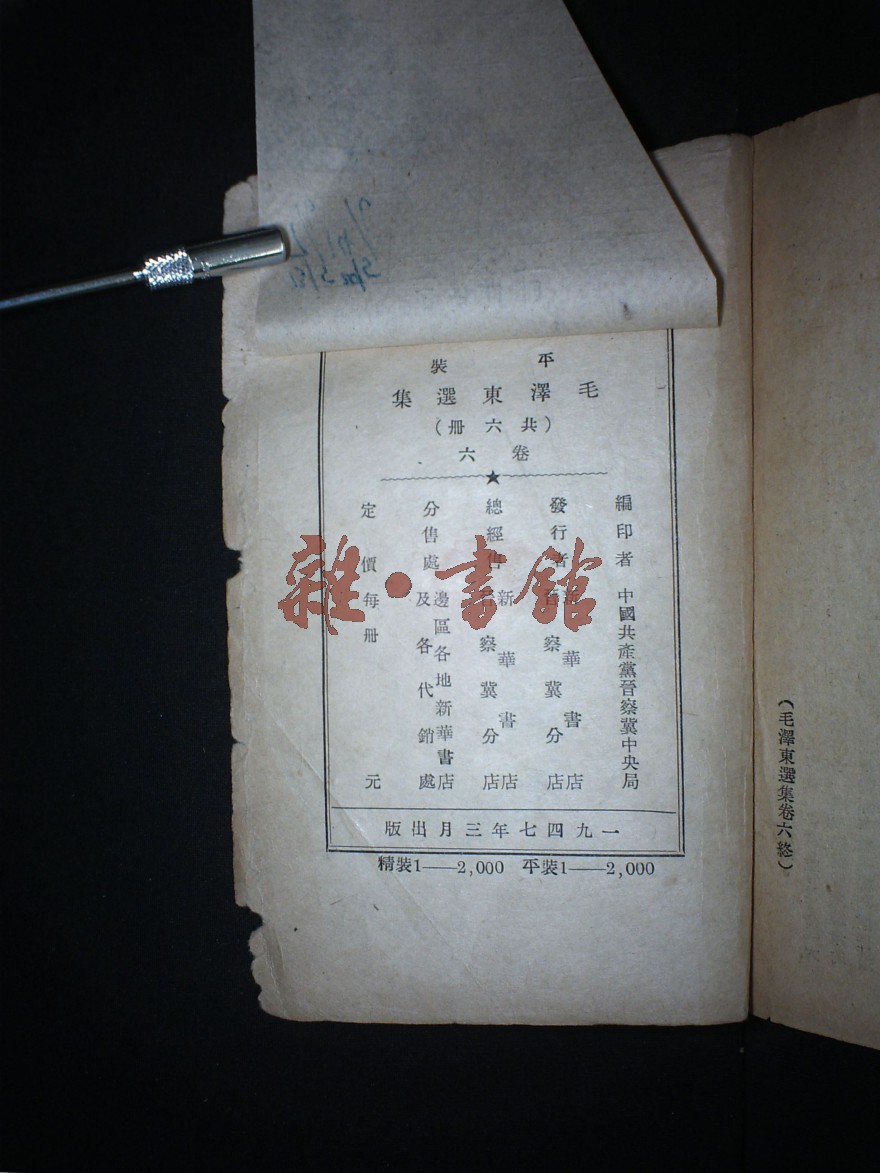 平裝
毛澤東選集
(共六冊)
卷六
編印者 中國共產黨晉察冀中央局
發行者 新華書店
晉察冀分店
總經售 新華書店
晉察冀分店
分售處 邊區各地新華書店
及各代銷處
定價每冊 元
一九四七年三月出版
精裝1——2,000 平裝1——2,000
(毛澤東選集卷六終)
雜·書館